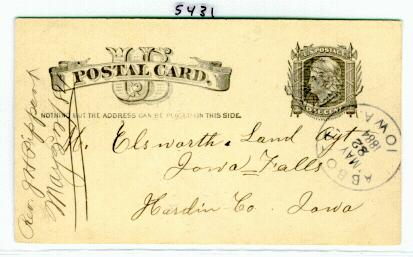 5431
US
POSTAL CARD.
NOTHING BUT THE ADDRESS CAN BE PLACED ON THIS SIDE.
U.S. POSTAGE
ONE CENT
H. Elsworth Land Agt
Iowa Falls
Hardin Co. Iowa
ABBO IOWA
MAY
22
1884
Rev. J H
May